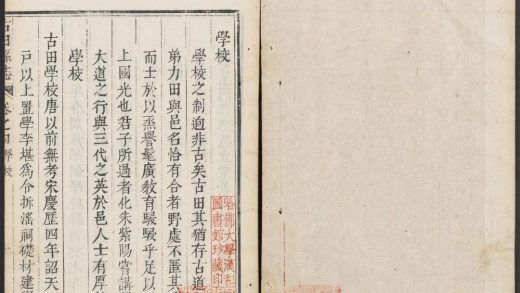 學校
學校之制迥非古矣古田其猶存古道
弟力田與邑名恰有合者野處不匿其
而士於以烝譽髦廣教育駸駸乎足以
上國光也君子所過者化朱紫陽嘗講
大道之行與三代之英於邑人士有厚
學校
古田學校唐以前無考宋慶歷四年詔天
戸以上置學李堪爲令拆滛祠礎材建
古田縣志 卷之四 學校
哈佛大學漢和
圖書館珍藏印